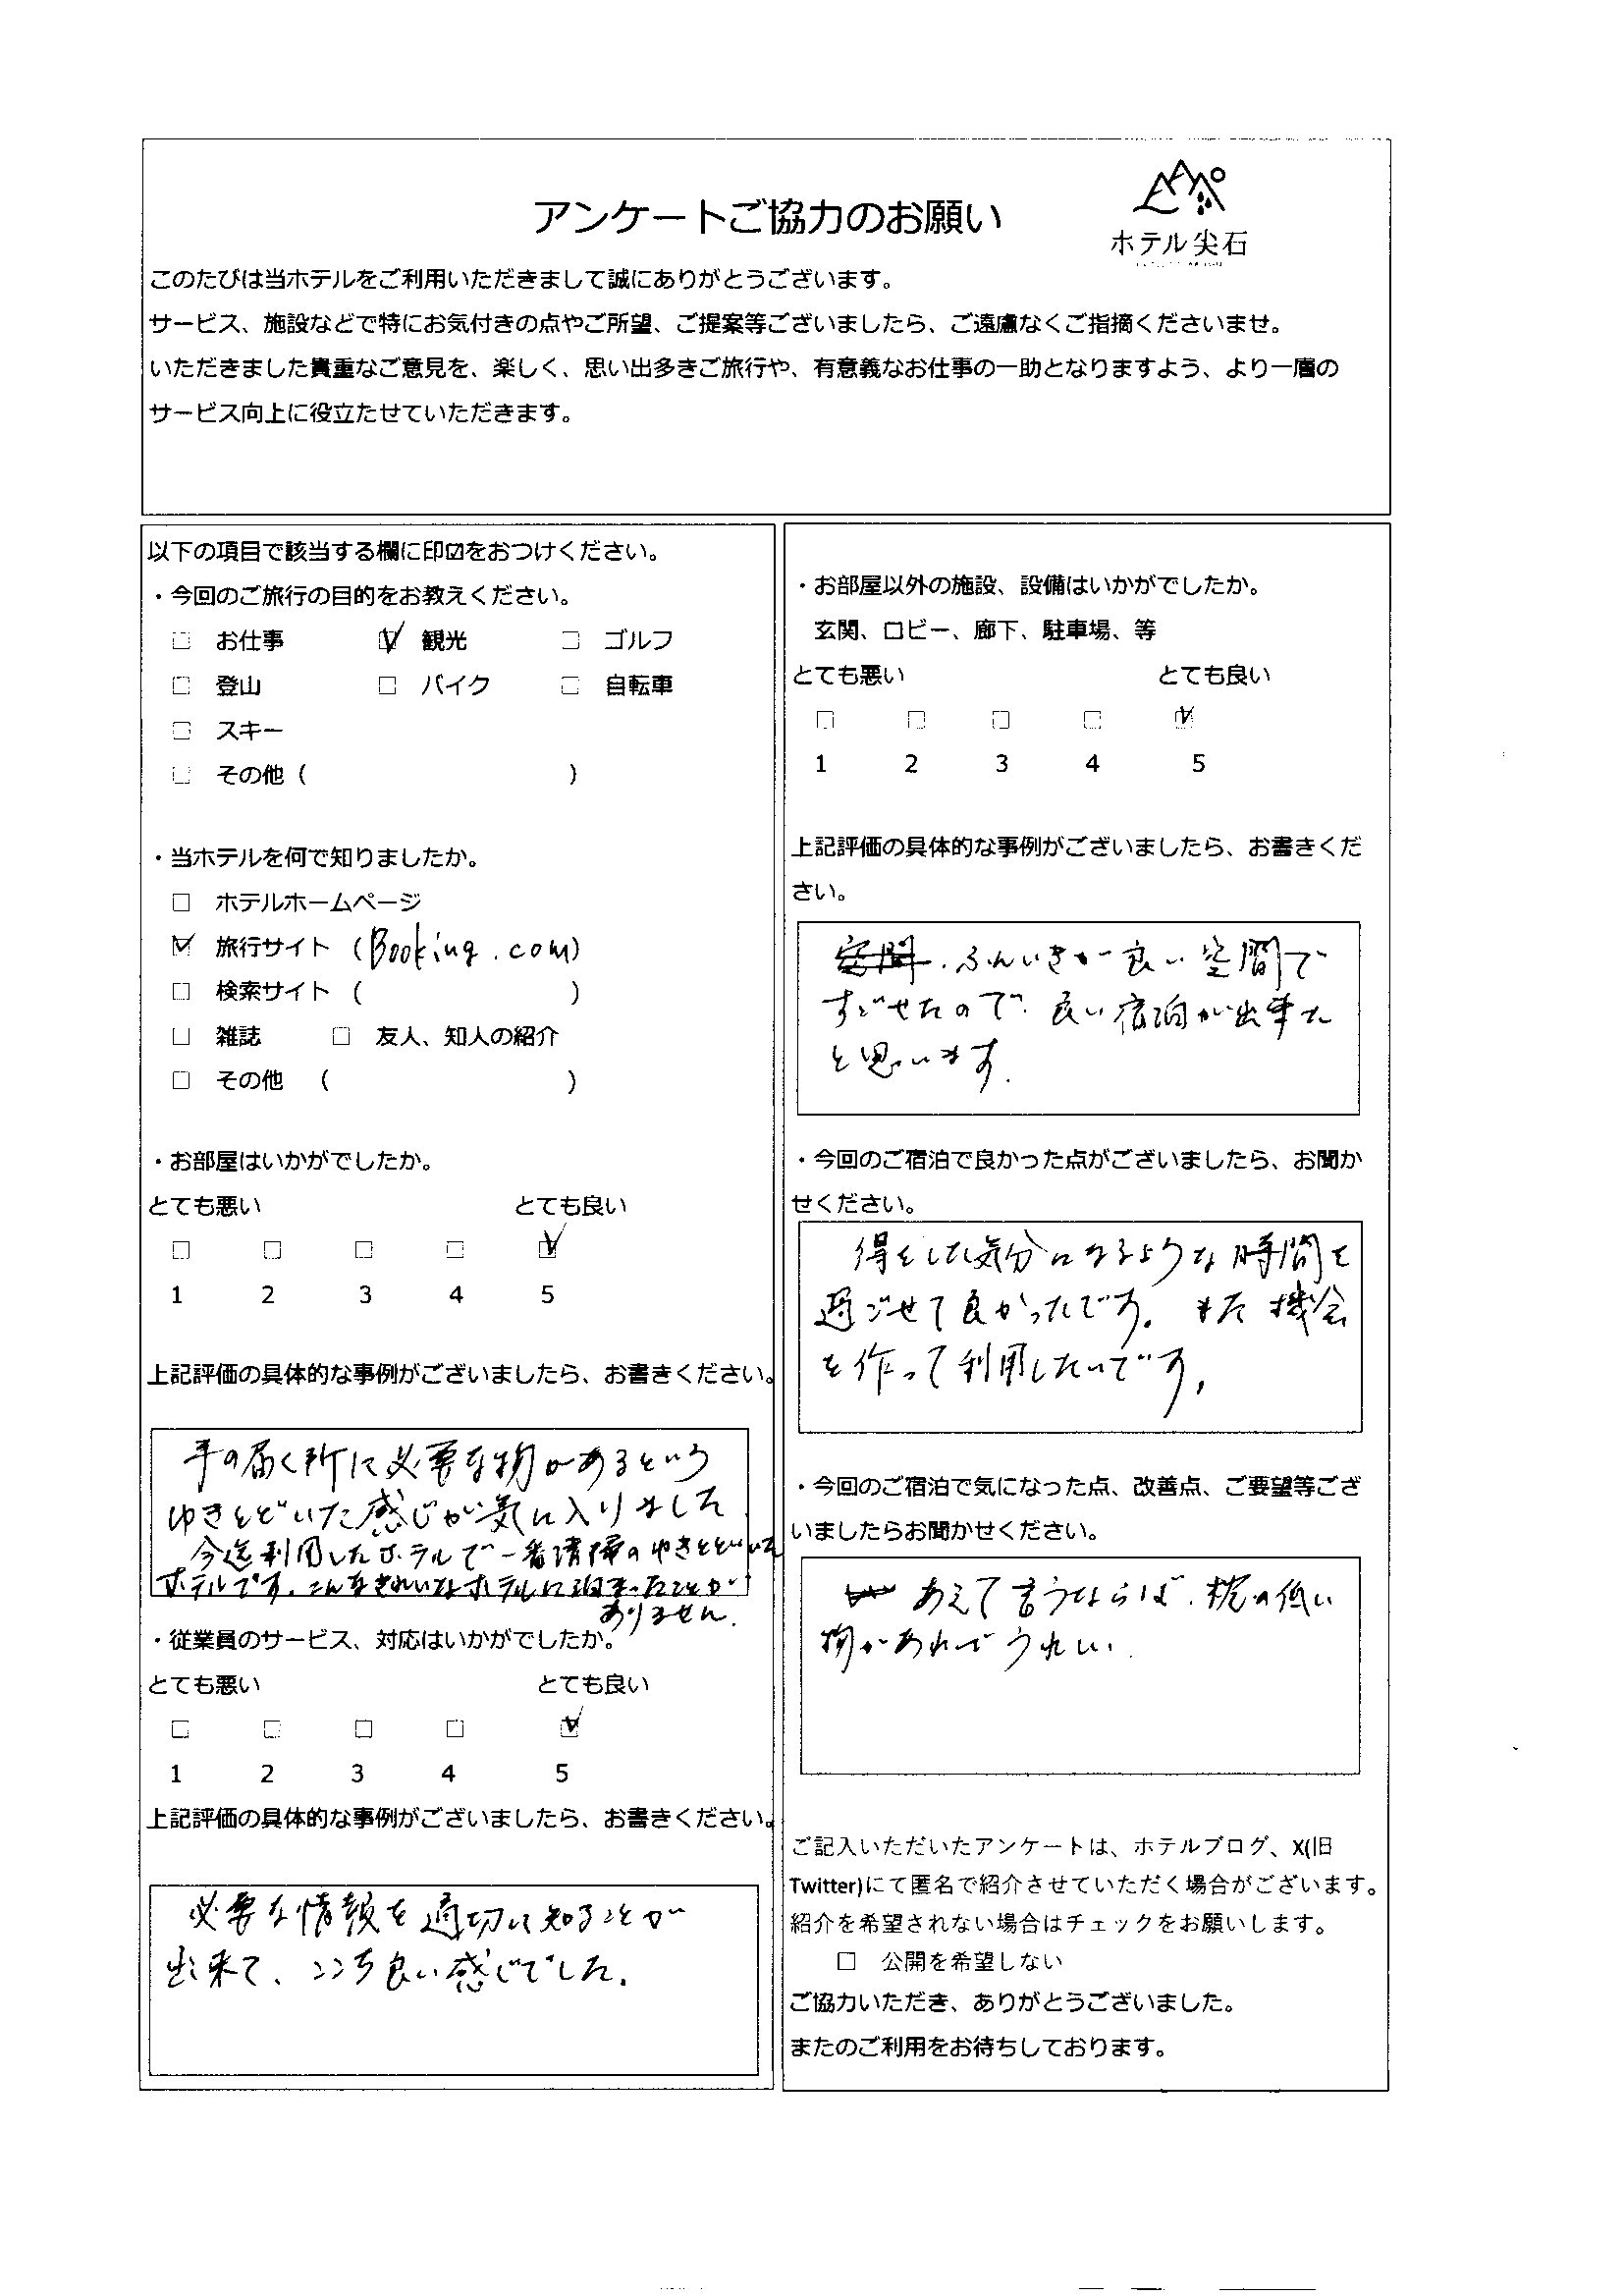 アンケートご協力のお願い
ホテル尖石
このたびは当ホテルをご利用いただきまして誠にありがとうございます。
サービス、施設などで特にお気付きの点やご所望、ご提案等ございましたら、ご遠慮なくご指摘くださいませ。
いただきました貴重なご意見を、楽しく、思い出多きご旅行や、有意義なお仕事の一助となりますよう、より一層の
サービス向上に役立たせていただきます。
以下の項目で該当する欄に印☑をおつけください。
・今回のご旅行の目的をお教えください。
□ お仕事 ☑ 観光 □ ゴルフ
□ 登山 □ バイク □ 自転車
□ スキー
□ その他 ( )
・当ホテルを何で知りましたか。
□ ホテルホームページ
☑ 旅行サイト (Booking.com)
□ 検索サイト ( )
□ 雑誌 □ 友人、知人の紹介
□ その他 ( )
・お部屋はいかがでしたか。
とても悪い とても良い
□ □ □ □ ☑
1 2 3 4 5
上記評価の具体的な事例がございましたら、お書きください。
手の届く所に必要な物があるという
ゆきとどいた感じが気に入りました
今迄利用したホテルで一番清掃のゆきとどいた
ホテルです。こんなきれいなホテルに泊まったことが
ありません.
・従業員のサービス、対応はいかがでしたか。
とても悪い とても良い
□ □ □ □ ☑
1 2 3 4 5
上記評価の具体的な事例がございましたら、お書きください。
必要な情報を適切に知ることが
出来て、ココち良い感じでした.
・お部屋以外の施設、設備はいかがでしたか。
玄関、ロビー、廊下、駐車場、等
とても悪い とても良い
□ □ □ □ ☑
1 2 3 4 5
上記評価の具体的な事例がございましたら、お書きくだ
さい。
ふんいきが良い空間で
すごせたので、良い宿泊が出来た
と思います.
・今回のご宿泊で良かった点がございましたら、お聞か
せください。
得をした気分になるような時間を
過ごせて良かったです。また機会
を作って利用したいです.
・今回のご宿泊で気になった点、改善点、ご要望等ござ
いましたらお聞かせください。
あえて言うならば、枕の低い
物があればうれしい.
ご記入いただいたアンケートは、ホテルブログ、X(旧
Twitter)にて匿名で紹介させていただく場合がございます。
紹介を希望されない場合はチェックをお願いします。
□ 公開を希望しない
ご協力いただき、ありがとうございました。
またのご利用をお待ちしております。